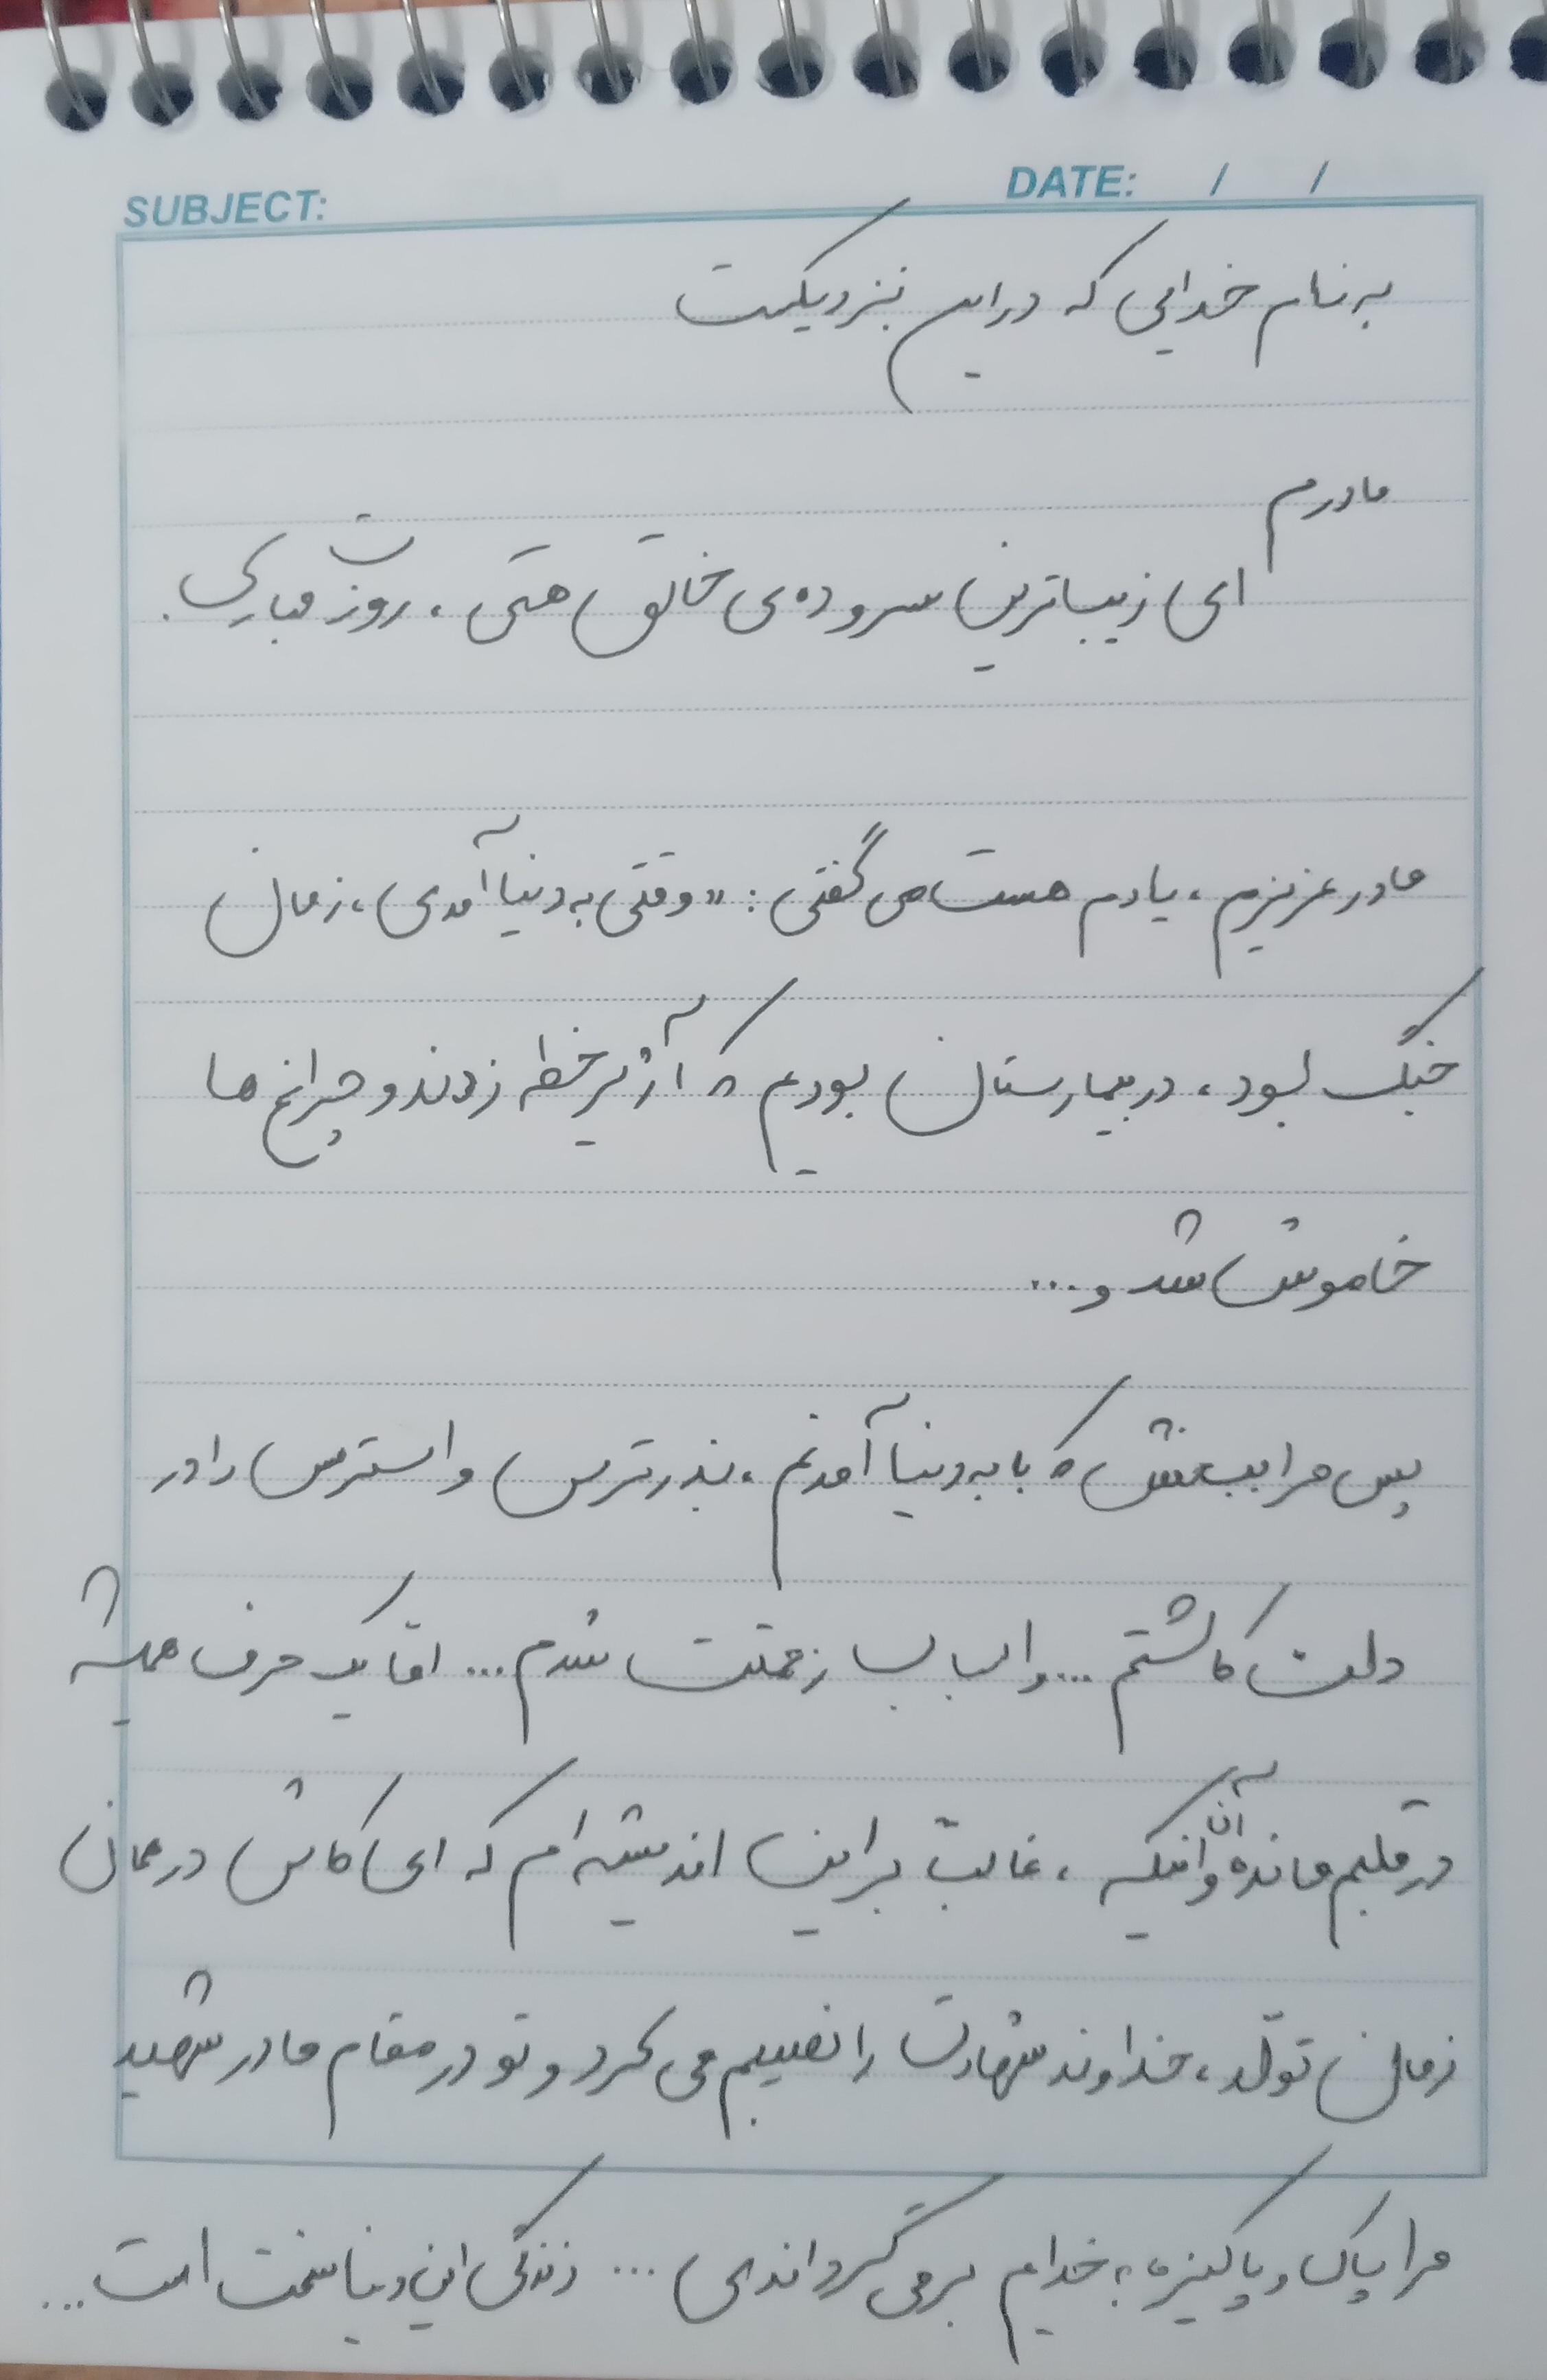 SUBJECT:
DATE: / /
به نام خدایی که در این نزدیکیست
مادرم
ای زیباترین سروده‌ی خالق هستی، روزت مبارک.
مادر عزیزم، یادم هست می گفتی: «وقتی به دنیا آمدی، زمان
جنگ بود، در بیمارستان بودیم که آژیر خطر زدند و چراغ ها
خاموش شد و ...
پس مرا ببخش که با به دنیا آمدنم، بذر ترس و استرس را در
دلت کاشتم ... و اسباب زحمتت شدم ... امّا یک حرف همیشه
در قلبم مانده و آن اینکه، غالبً بر این اندیشه ام که ای کاش در همان
زمان تولّد، خداوند شهادت را نصیبم می کرد و تو در مقام مادر شهید
مرا پاک و پاکیزه به خدایم برمی گرداندی ... زندگی این دنیا سخت است ...